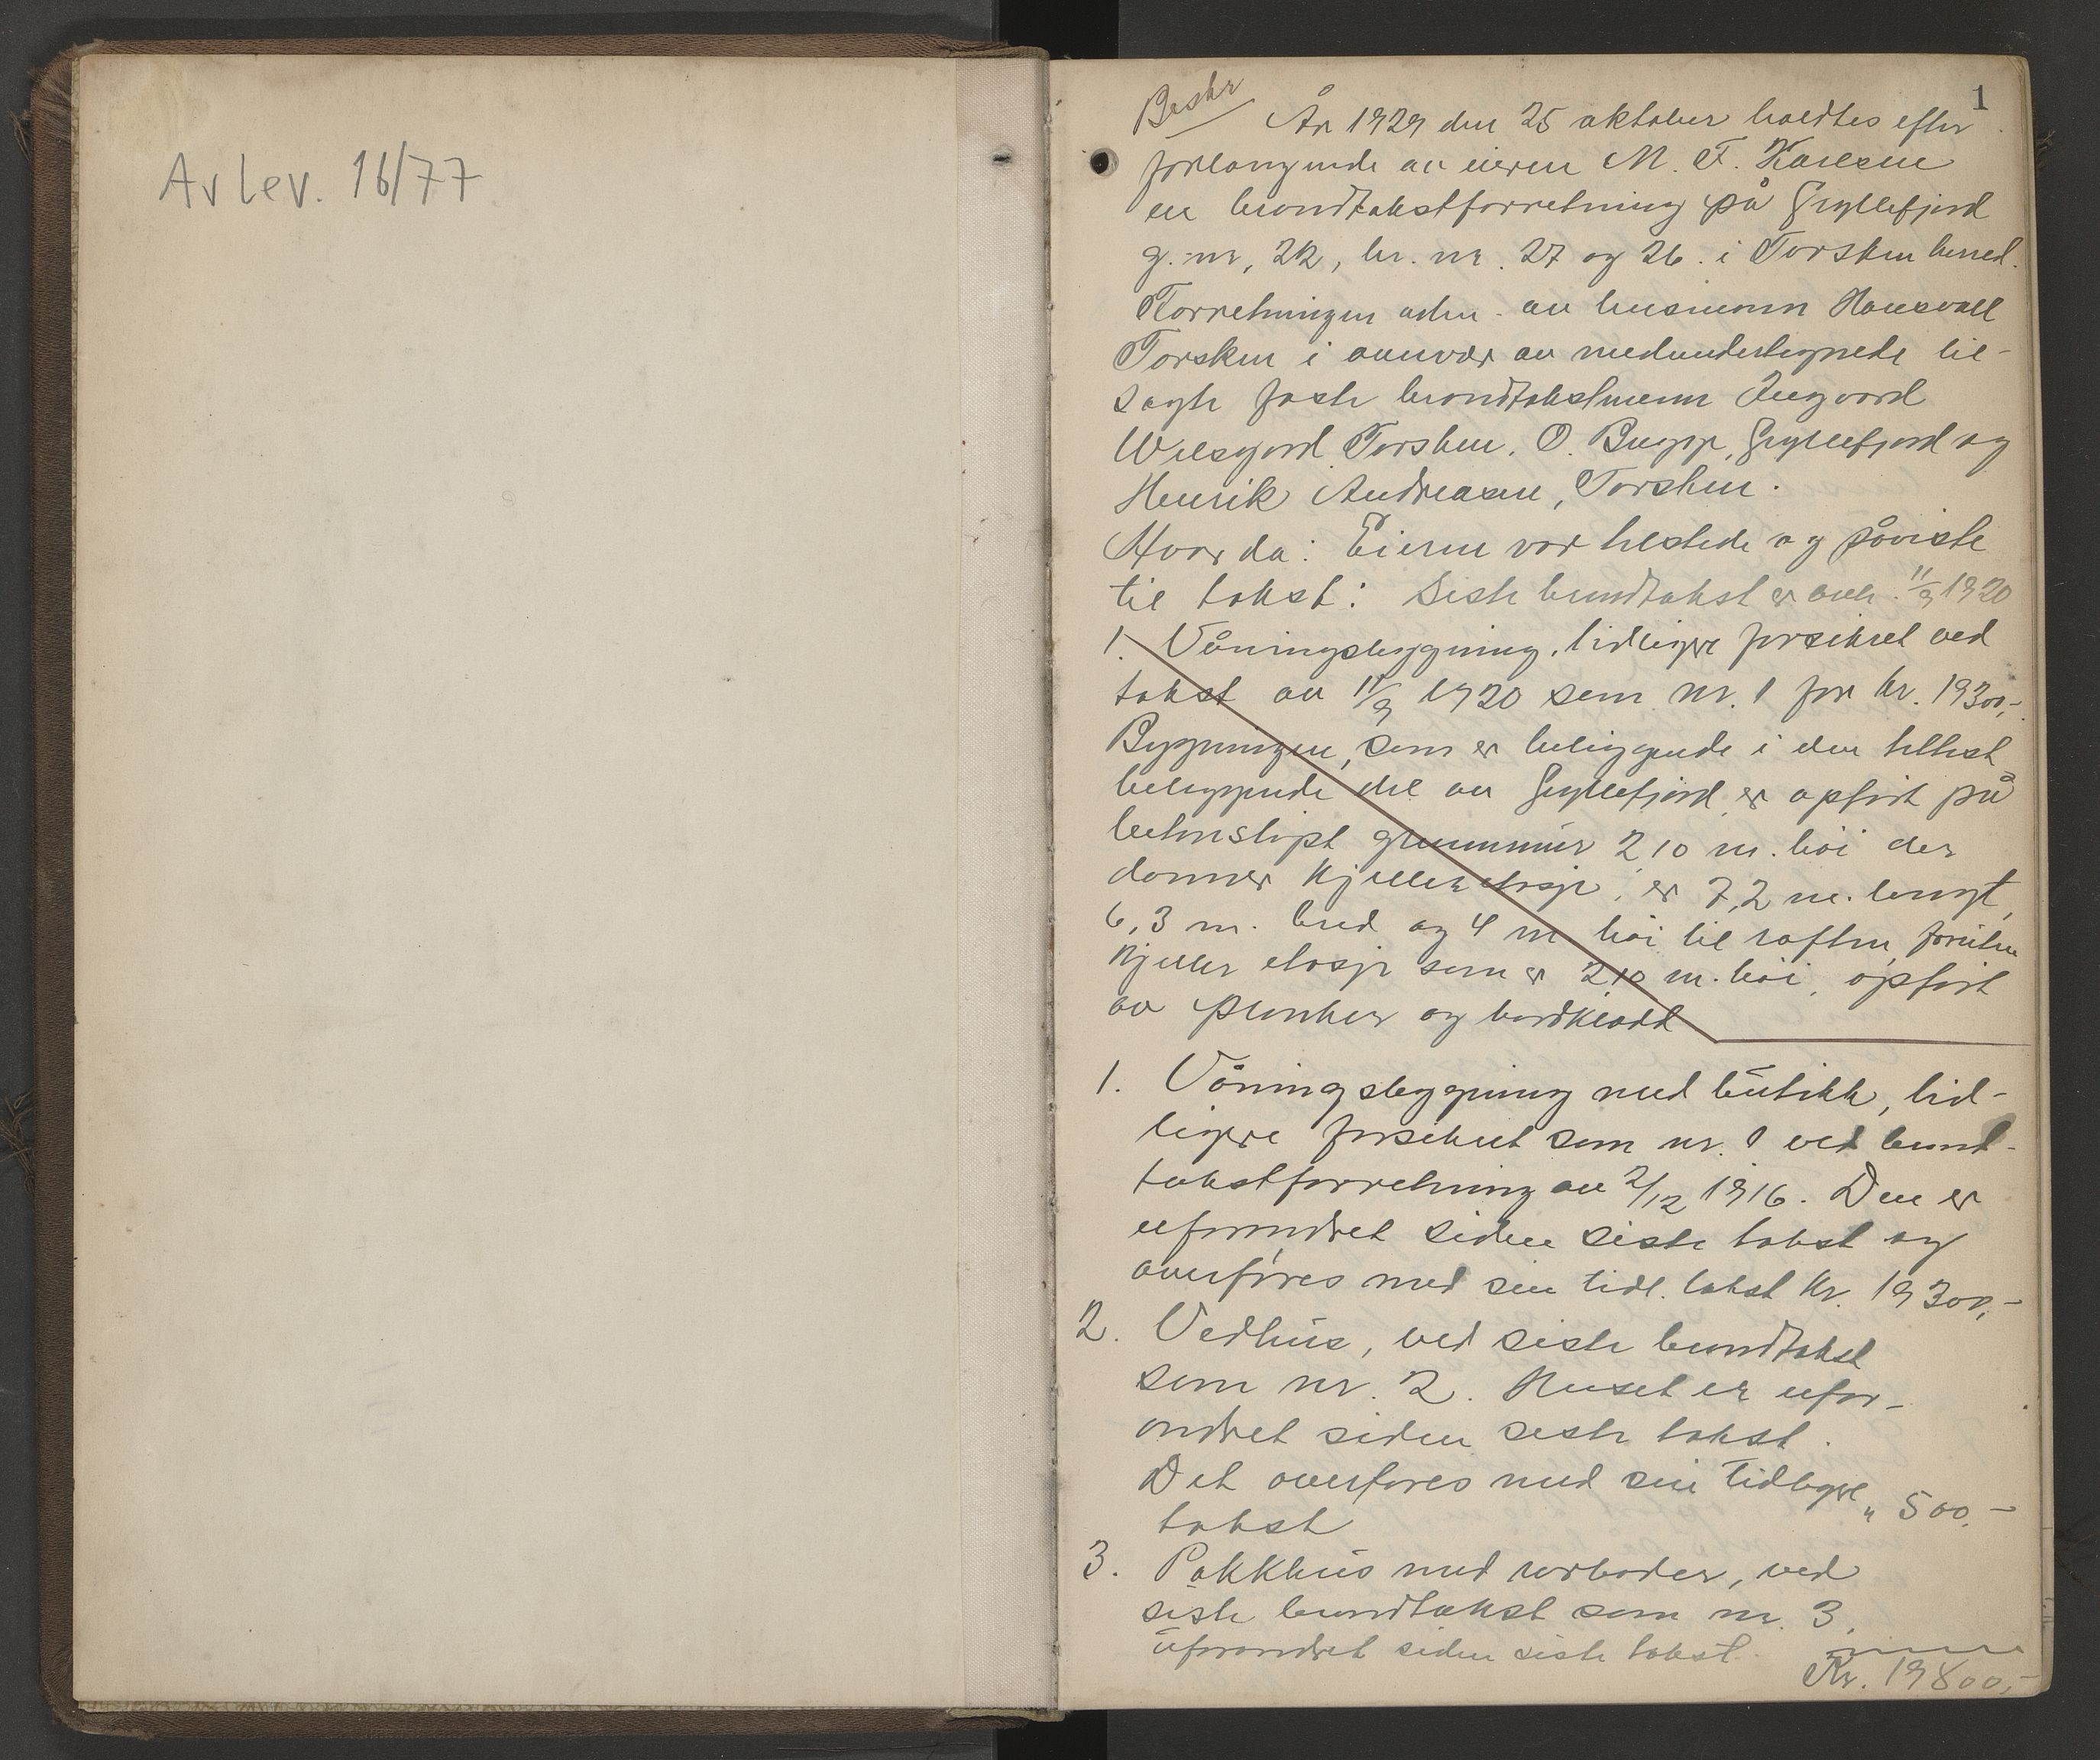 Avlev. 16/77
1
Beskr
År 1929 den 25 oktober holdtes efter
forlangende av eieren M. F. Karlsen
en branntakstforretning på Gryllefjord
g.nr, 22, br. nr. 27 og 26. i Torsken herred.
Forretningen adm. av lensmann Hansvoll
Torsken i overvær av medundertegnede til-
sagte faste branntakstmenn Ingvard
Wilsgård Torsken, O. Bugge, Gryllefjord og
Henrik Andreasen, Torsken.
Hvorda: Eieren var tilstede og påviste
til takst: Siste branntakst er avh. 11/9 1920
1. Våningsbygning, tidligere forsikret ved
takst av 11/9 1920 som nr. 1 for kr. 19300,-
Bygningen, som er beliggende i den tettest
beliggende del av Gryllefjord, er opført på
betonstøpt grunnmur 2,10 m. høi der
danner kjelleretasje, er 7,2 m. langt,
6,3 m. bred og 4 m høi til raften, foruten
kjeller etasje som er 2,10 m. høi, opført
av planker og bordklædt
1. Våningsbygning med butikk, tid-
ligere forsikret som nr. 1 ved brannt-
takstforretning av 2/12 1916. Den er
uforandret siden siste takst og
overføres med sin tidl. takst kr. 19300,-
2. Vedhus, ved siste branntakst
som nr. 2. Huset er ufor-
andret siden siste takst.
Det overføres med sin tidligere
takst " 500.-
3. Pakkhus med rorboder, ved
siste branntakst som nr. 3,
uforandret siden siste takst.
Kr. 19800,-